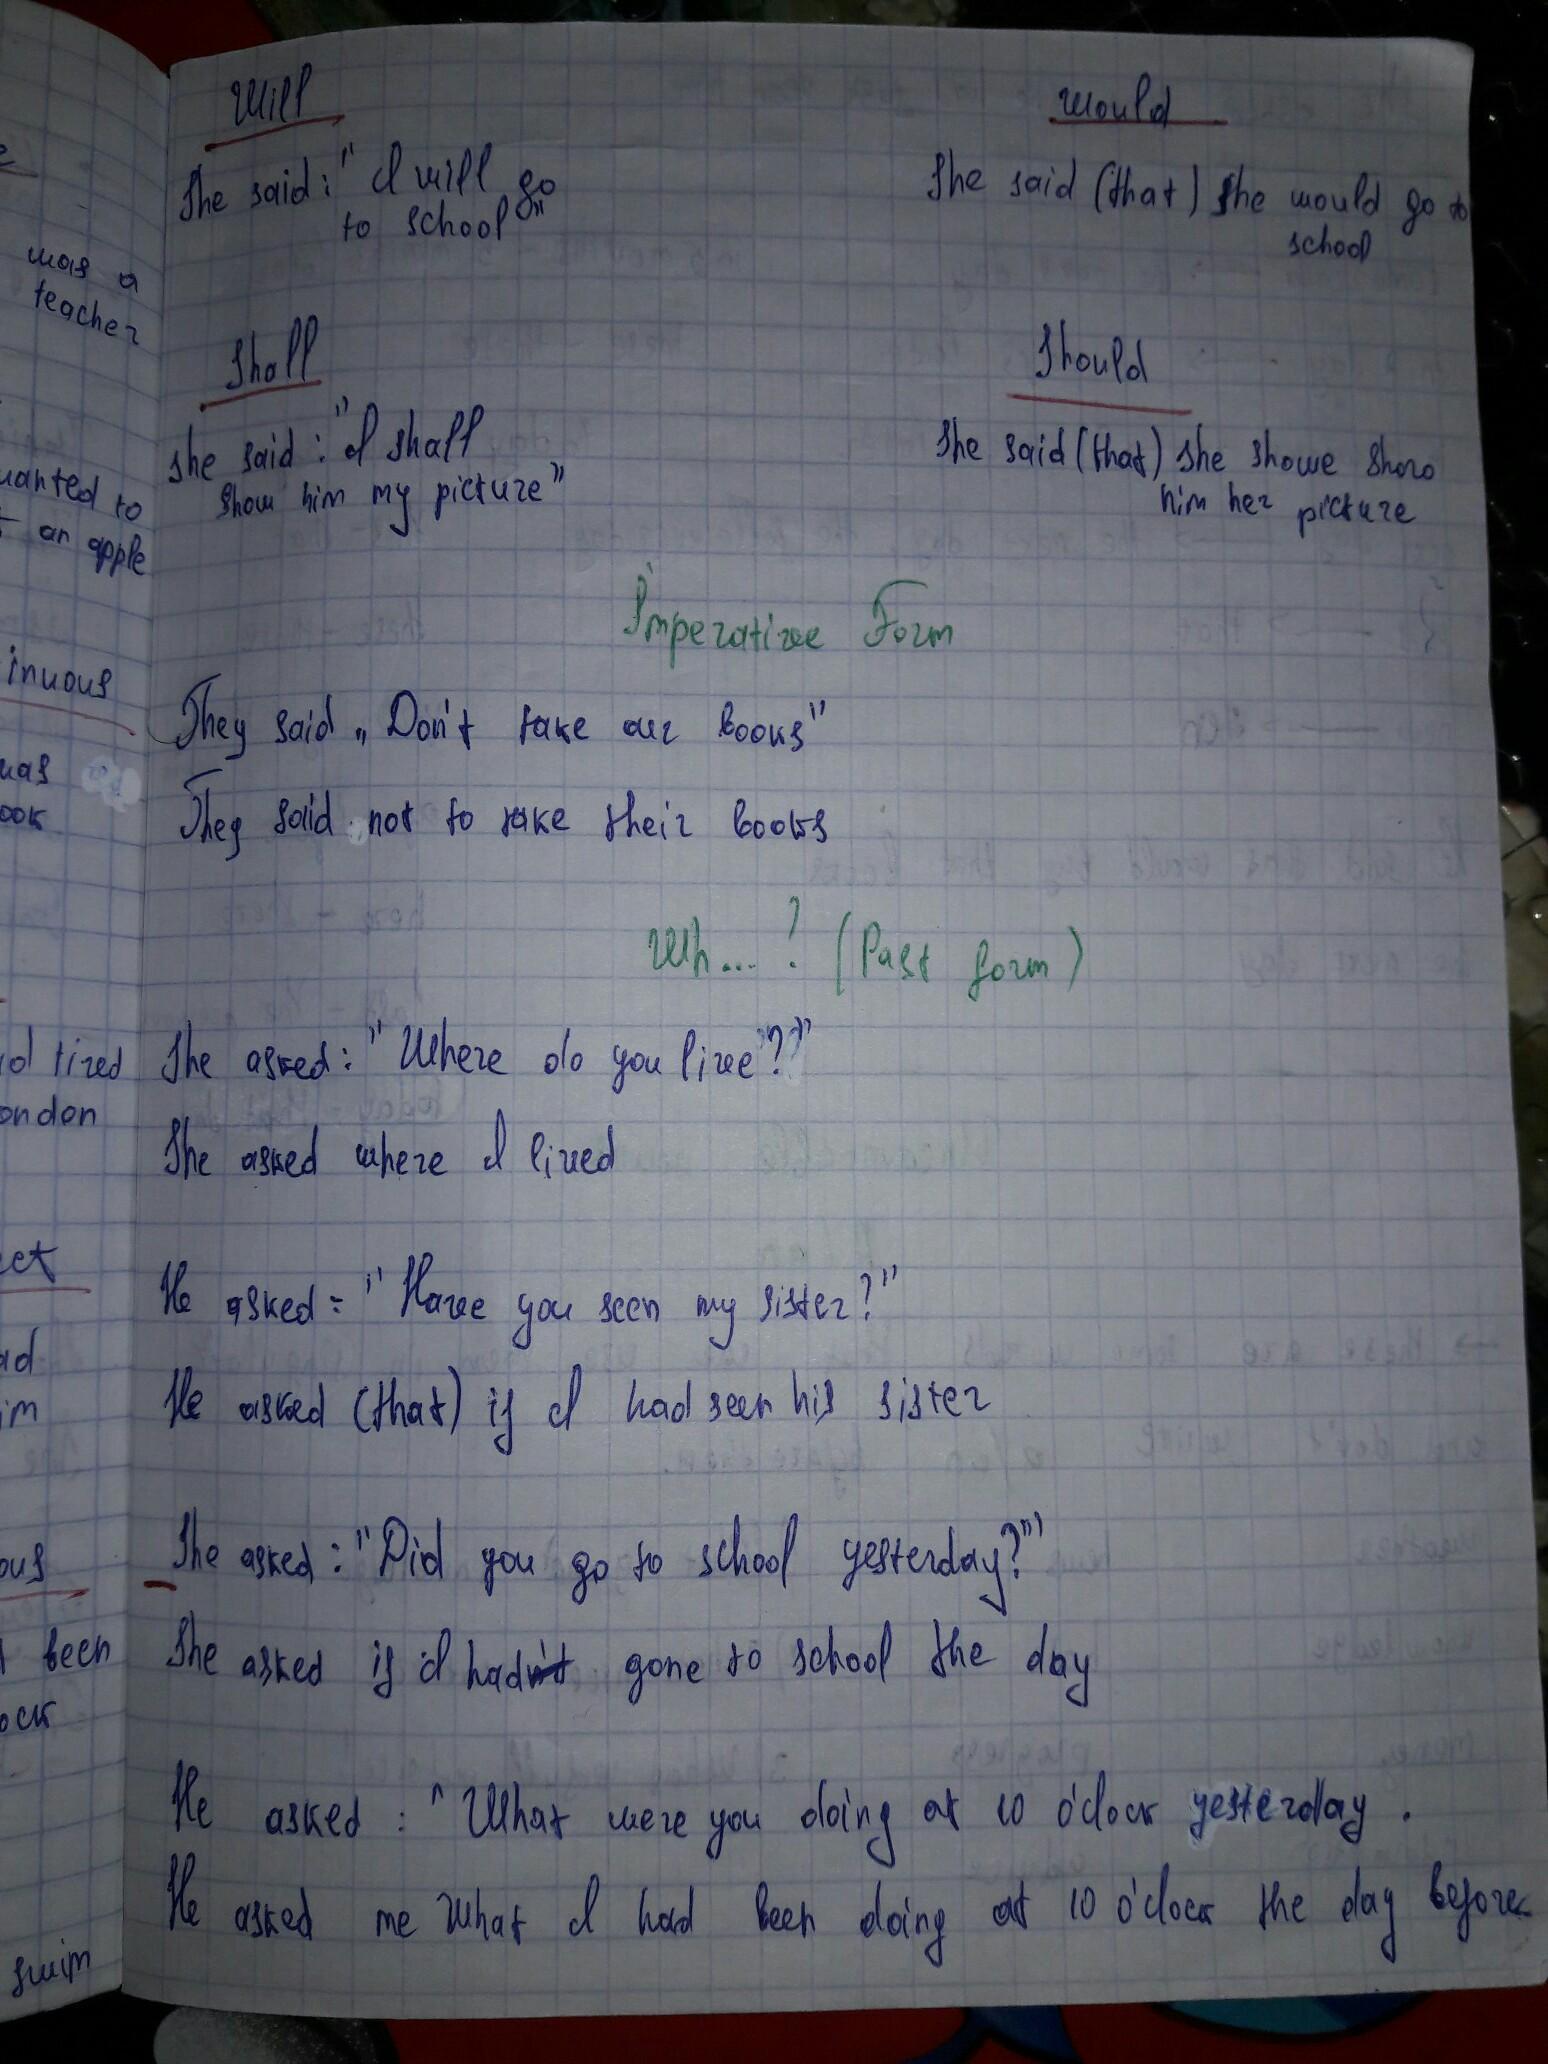 Will
Would
She said: " I will go
to school"
She said (that) She would go to
school
Shall
Should
She said: "I shall
show him my picture"
She said (that) she showe show
him her picture
Imperative Form
They said „ Don't take our books"
They said not to take their books
Wh...? (Past form)
She asked: " Where do you live?"
She asked where I lived
He asked = " Have you seen my sister?"
He asked (that) if I had seen his sister
She asked: "Did you go to school yesterday?"
She asked if I hadn't gone to school the day
He asked : " What were you doing at 10 o'clock yesterday .
He asked me what I had been doing at 10 o'clock the day before
was a
teacher
wanted to
an apple
inuous
was
ook
lived
ondon
ect
ad
im
ous
been
ock
swim